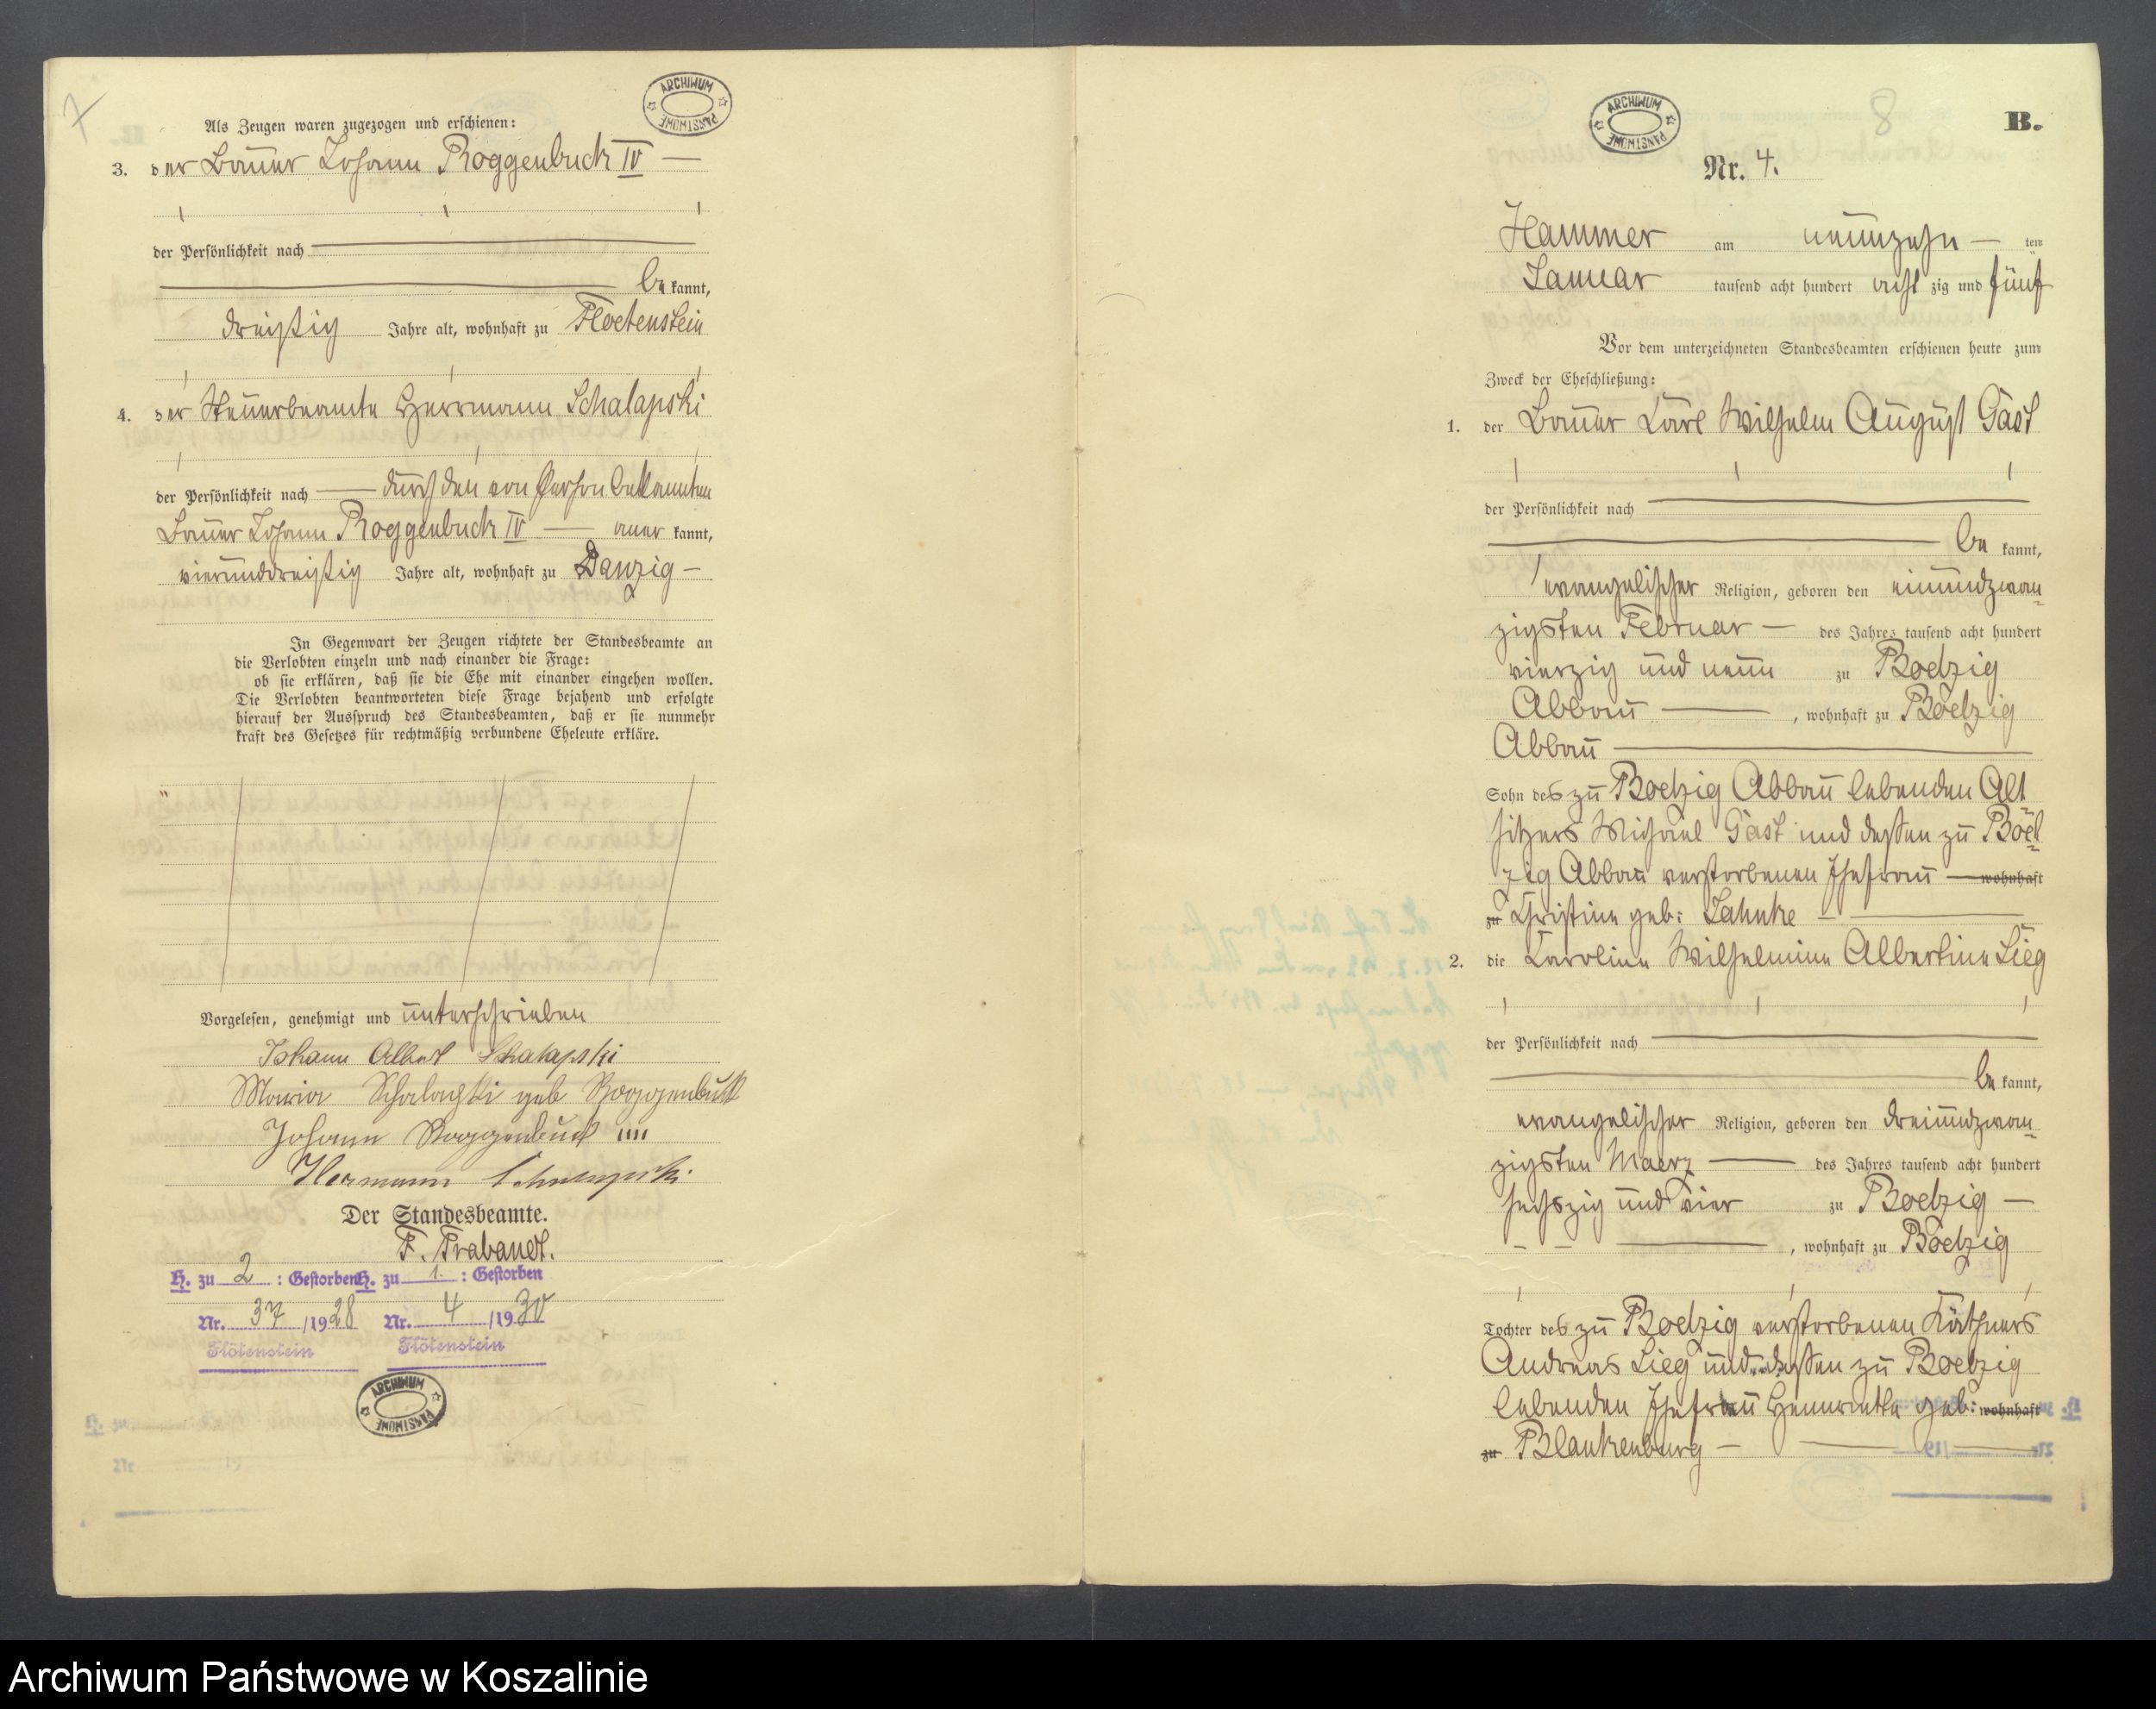 7
ARCHIWUM PAŃSTWOWE
Als Zeugen waren zugezogen und erschienen:
3. der Bauer Johann Roggenbuck IV —
der Persönlichkeit nach
be kannt,
dreißig Jahre alt, wohnhaft zu Floetenstein
4. der Steuerbeamte Herrmann Schalapski
der Persönlichkeit nach — durch den von Person bekannten
Bauer Johann Roggenbuck IV — aner kannt,
vierunddreißig Jahre alt, wohnhaft zu Danzig —
In Gegenwart der Zeugen richtete der Standesbeamte an
die Verlobten einzeln und nach einander die Frage:
ob sie erklären, daß sie die Ehe mit einander eingehen wollen.
Die Verlobten beantworteten diese Frage bejahend und erfolgte
hierauf der Ausspruch des Standesbeamten, daß er sie nunmehr
kraft des Gesetzes für rechtmäßig verbundene Eheleute erkläre.
Vorgelesen, genehmigt und unterschrieben
Johann Albert Schalapski
Maria Schalapski geb Roggenbuck
Johann Roggenbuck IIII
Hermann Schalapski
Der Standesbeamte.
F. Trabandt.
H. zu 2 : Gestorben H. zu 1. : Gestorben
Nr. 37 /1928 Nr. 4 /1930
Flötenstein Flötenstein
ARCHIWUM PAŃSTWOWE
ARCHIWUM PAŃSTWOWE
8
B.
Nr. 4.
Hammer am neunzehn — ten
Januar tausend acht hundert acht zig und fünf
Vor dem unterzeichneten Standesbeamten erschienen heute zum
Zweck der Eheschließung:
1. der Bauer Carl Wilhelm August Gast
der Persönlichkeit nach
be kannt,
evangelischer Religion, geboren den einundzwan-
zigsten Februar — des Jahres tausend acht hundert
vierzig und neun zu Boelzig
Abbau —, wohnhaft zu Boelzig
Abbau —
Sohn des zu Boelzig Abbau lebenden Alt
sitzers Michael Gast und dessen zu Boel-
zig Abbau verstorbenen Ehefrau — wohnhaft
zu Christine geb: Jahnke —
2. die Caroline Wilhelmine Albertine Lieg
der Persönlichkeit nach
be kannt,
evangelischer Religion, geboren den dreiundzwan-
zigsten Maerz — des Jahres tausend acht hundert
sechszig und vier zu Boelzig —
—, wohnhaft zu Boelzig
Tochter des zu Boelzig verstorbenen Käthners
Andreas Lieg und dessen zu Boelzig
lebenden Ehefrau Henriette geb: wohnhaft
zu Blankenburg —
Archiwum Państwowe w Koszalinie